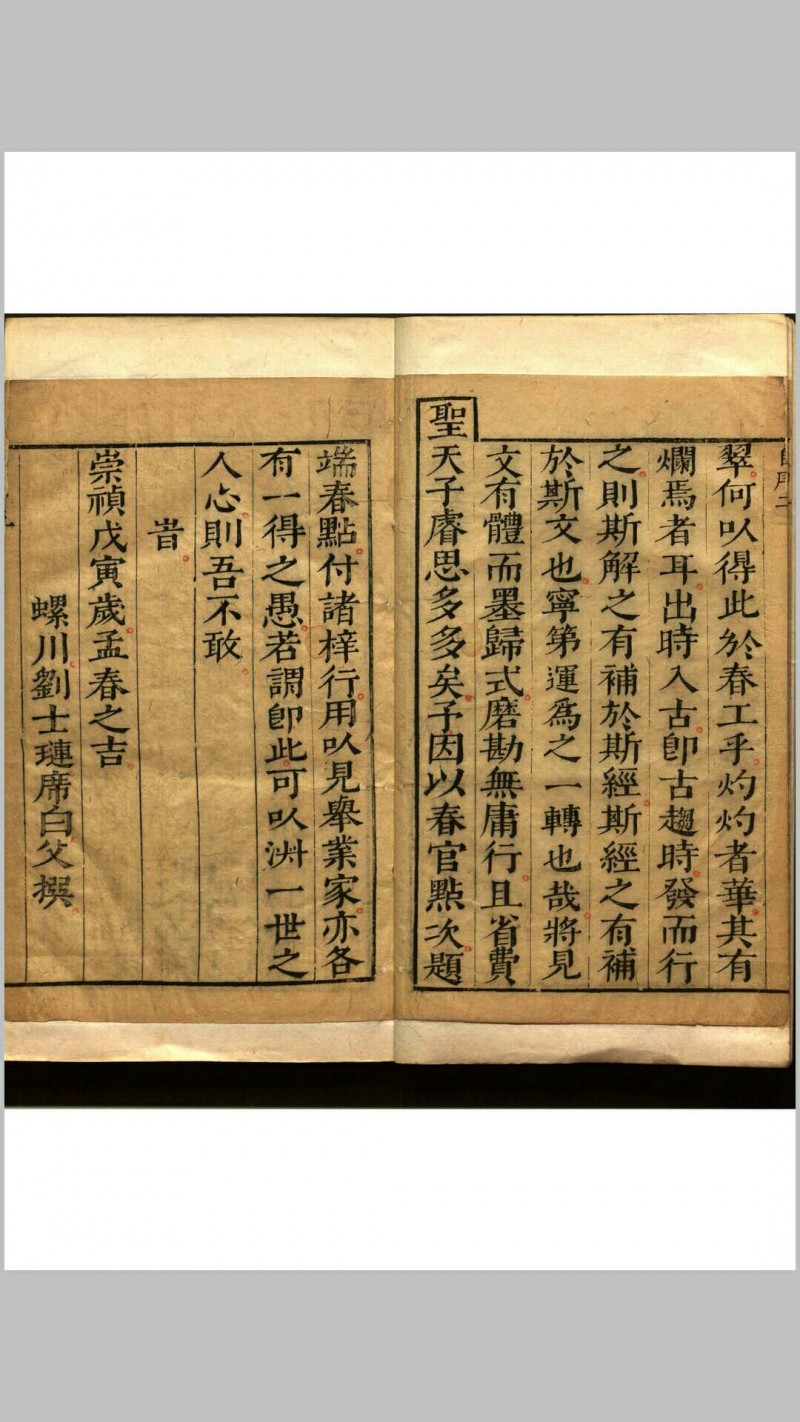 自序二
翠何以得此於春工乎灼灼者華其有
爛焉者耳出時入古卽古趨時發而行
之則斯解之有補於斯經斯經之有補
於斯文也寧第運爲之一轉也哉將見
文有體而墨歸式磨勘無庸行且省費
聖天子睿思多多矣予因以春官點次題
端春點付諸梓行用以見舉業家亦各
有一得之愚若謂卽此可以淋一世之
人心則吾不敢
旹
崇禎戊寅歲孟春之吉
螺川劉士璉席白父撰